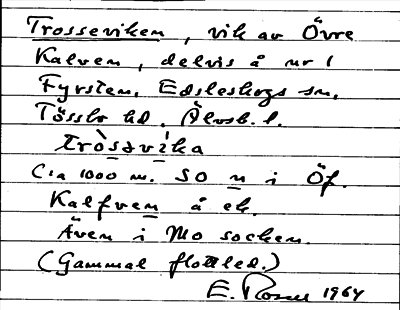 Trosseviken, vik av Övre
Kalven, delvis å nr 1
Fyrsten, Edsleskogs sn,
Tössbo hd, Älvsb. l.
tròsəvìka
Ca 1000 m. SO n i Öf.
Kalfven å ek.
Även i Mo socken.
(Gammal flottled.)
E. Rosen 1964